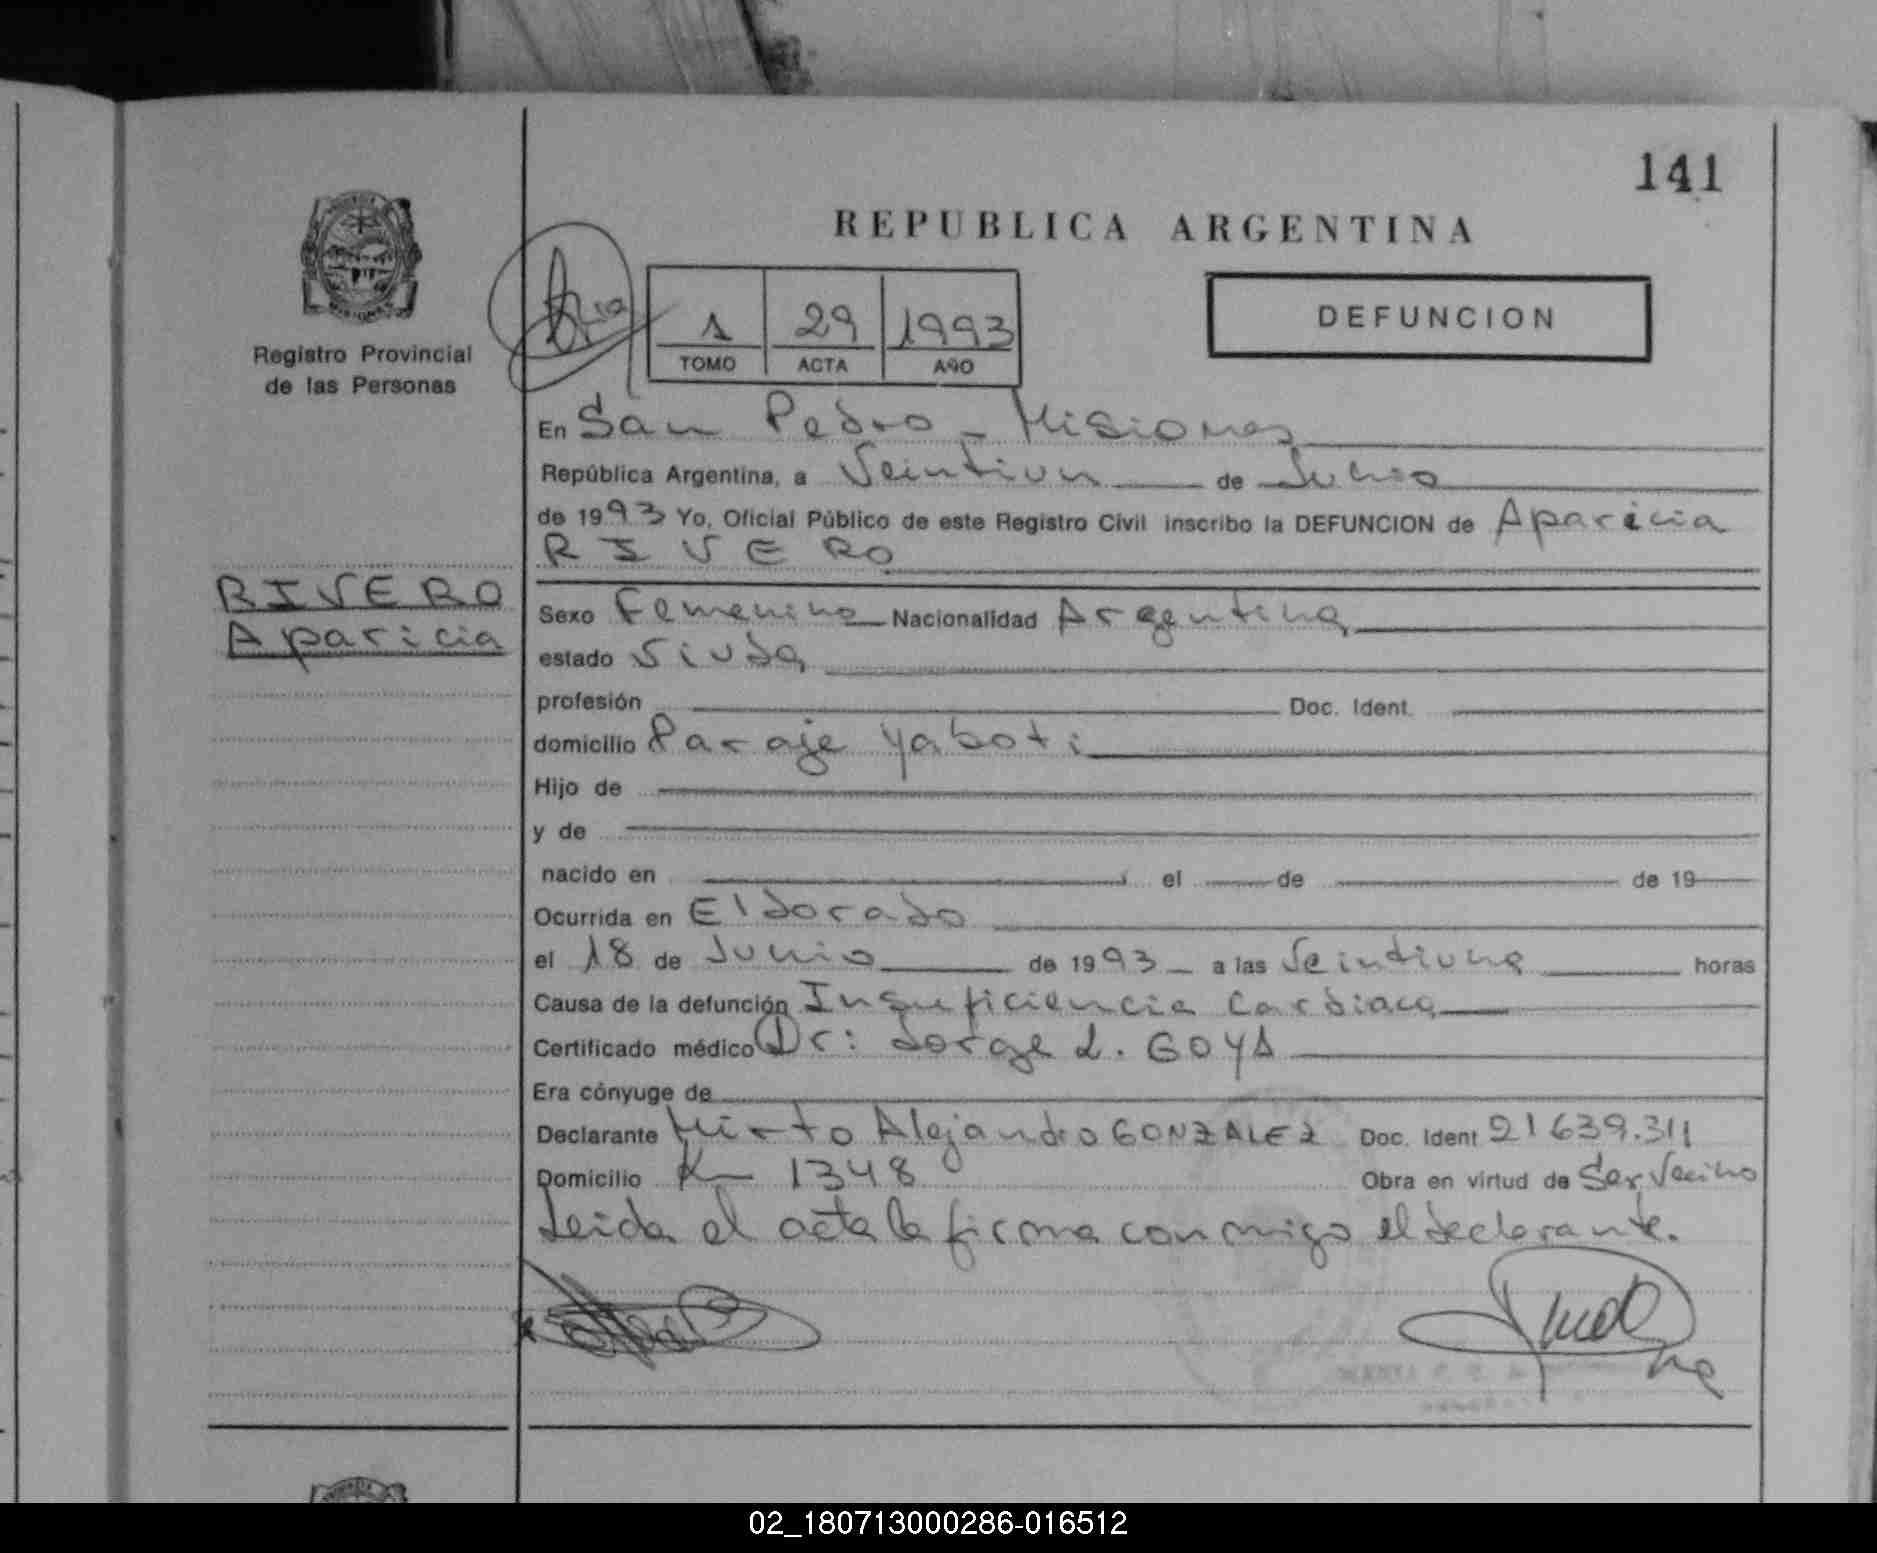 141
REPUBLICA ARGENTINA
Registro Provincial
de las Personas
1 29 1993
TOMO ACTA AÑO
DEFUNCION
En San Pedro - Misiones
República Argentina, a Veintiun de Junio
de 1993 Yo, Oficial Público de este Registro Civil inscribo la DEFUNCION de Aparicia
RIVERO
RIVERO
Aparicia
Sexo Femenino Nacionalidad Argentina
estado Viuda
profesión Doc. Ident.
domicilio Paraje Yaboti
Hijo de
y de
nacido en el de de 19
Ocurrida en Eldorado
el 18 de Junio de 1993 a las Veintiuna horas
Causa de la defunción Insuficiencia Cardiaca
Certificado médico Dr: Jorge L. GOYA
Era cónyuge de
Declarante Mirto Alejandro GONZALEZ Doc. Ident 21639.311
Domicilio Km 1348 Obra en virtud de Ser Vecino
Leida el acta la firma conmigo el declarante.
02_180713000286-016512